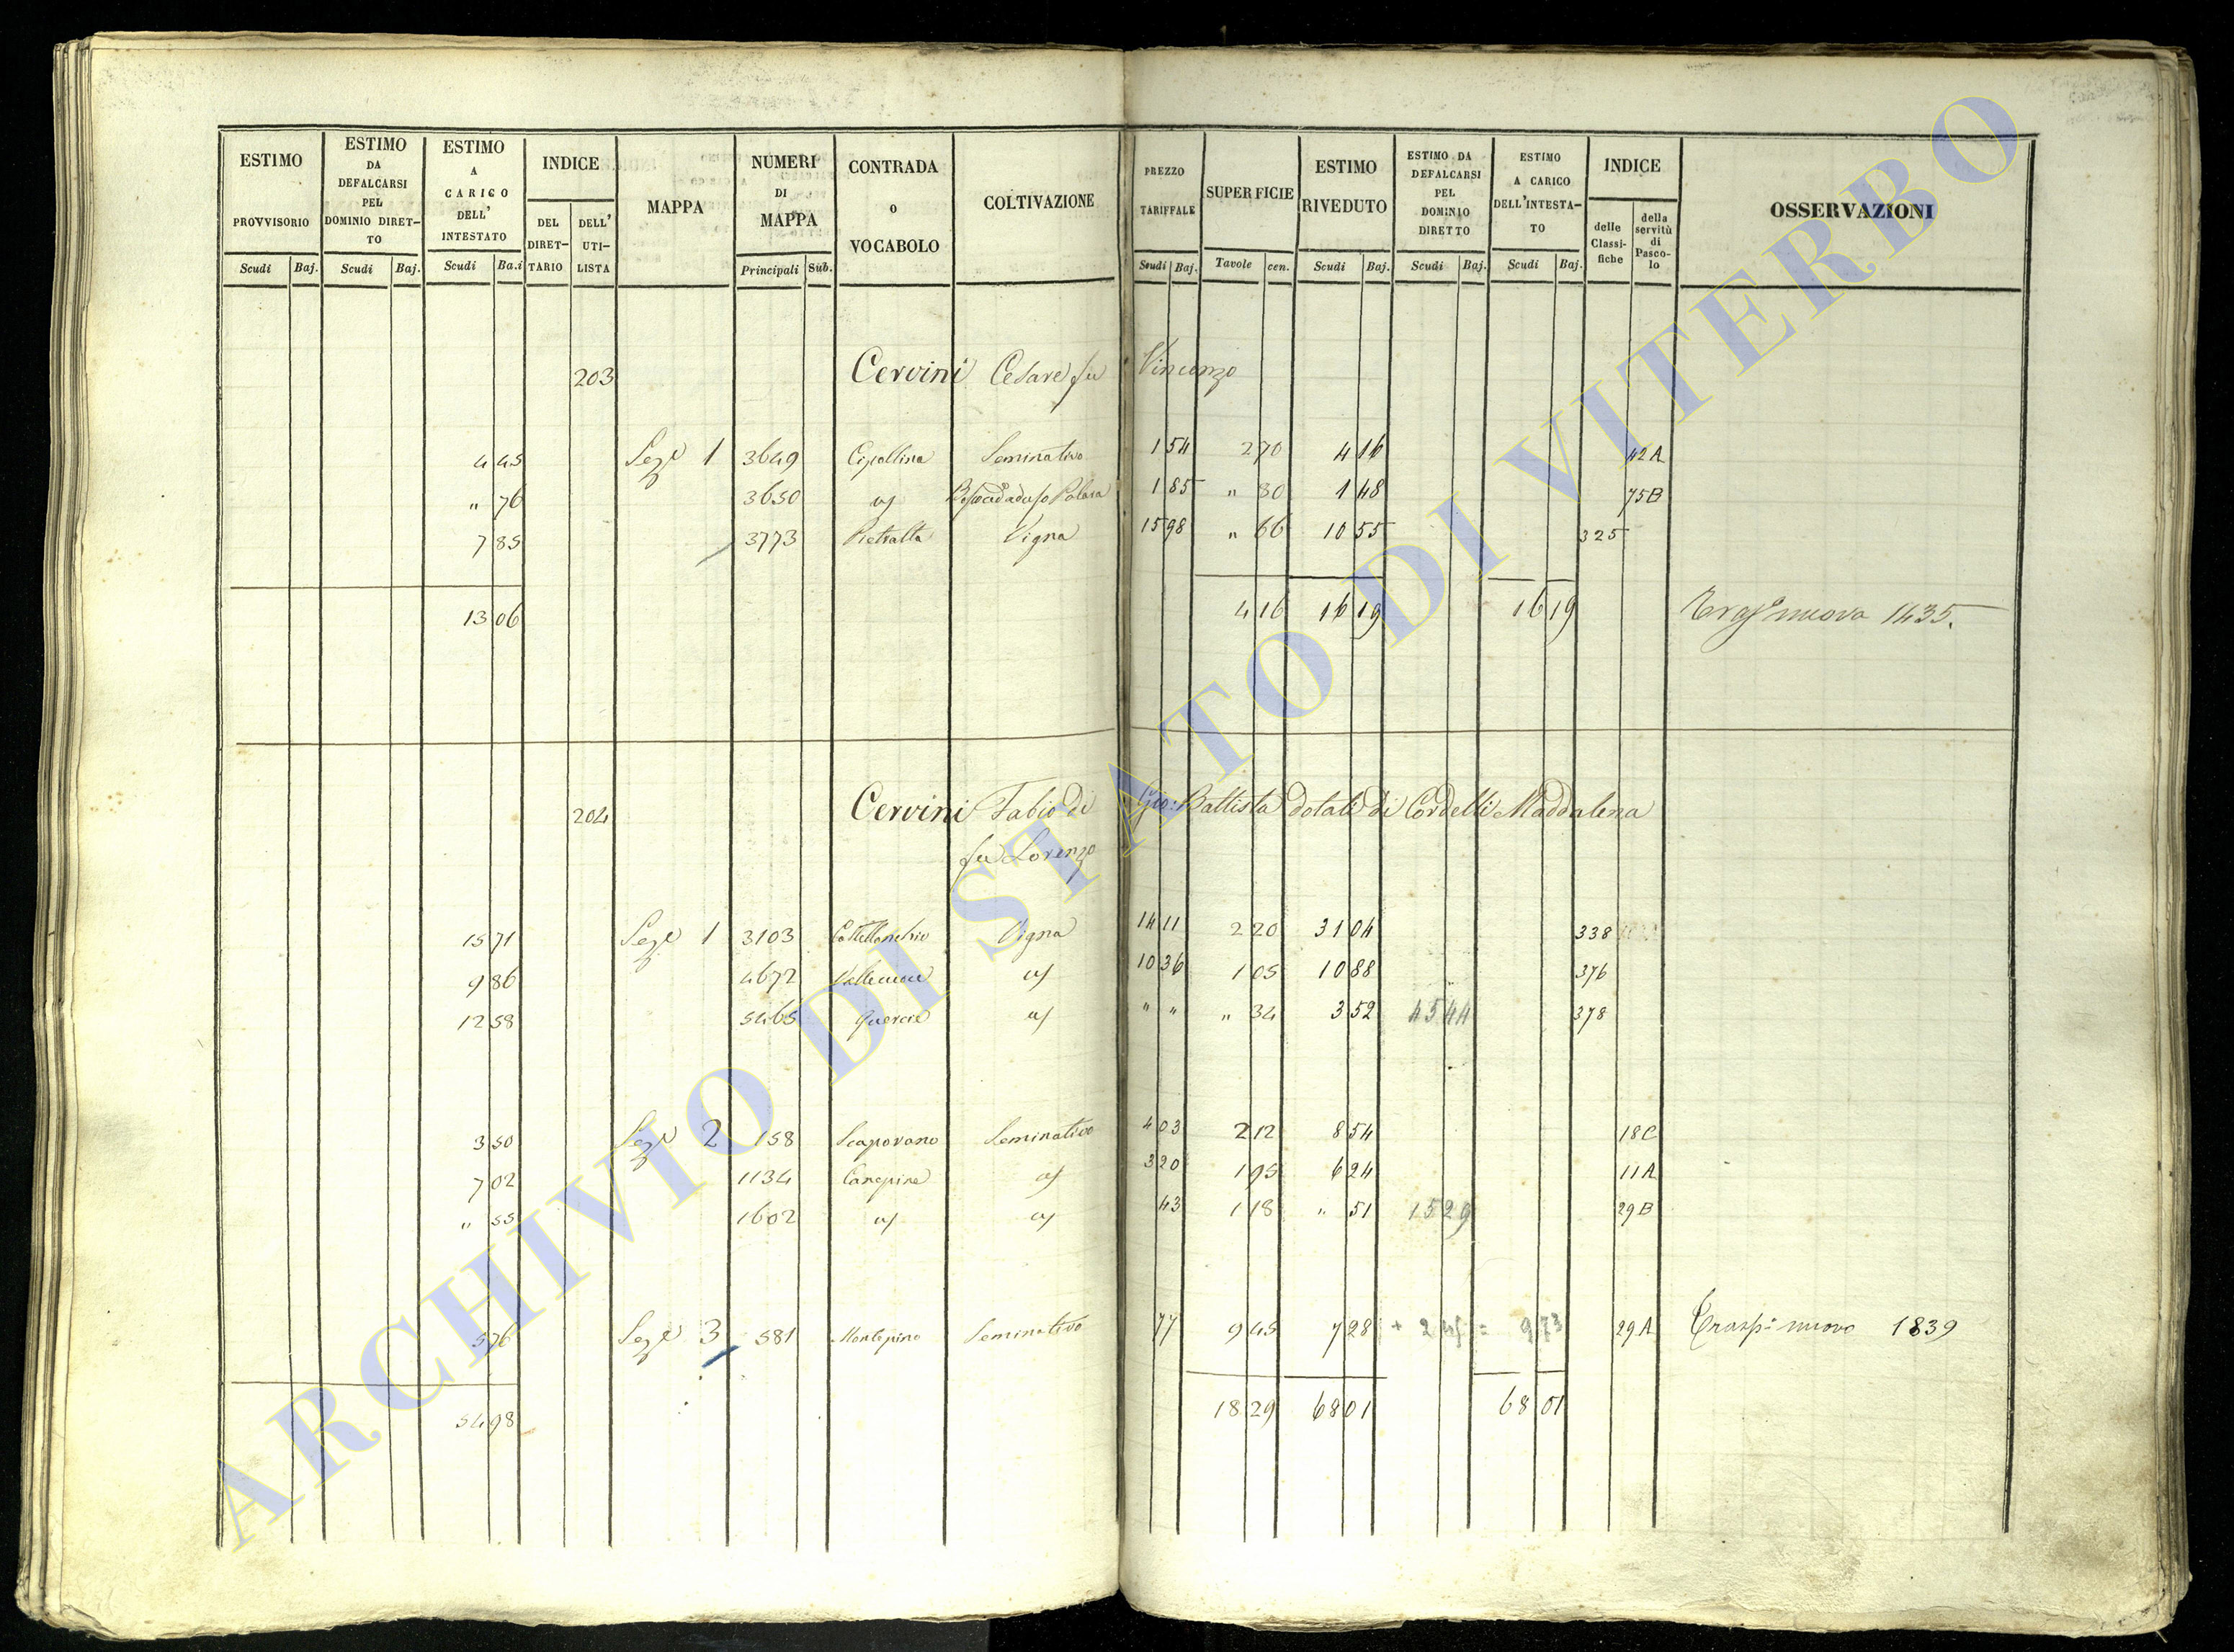 ESTIMO PROVVISORIO Scudi Baj.
ESTIMO DA DEFALCARSI PEL DOMINIO DIRETTO Scudi Baj.
ESTIMO A CARICO DELL' INTESTATO Scudi Ba.i
INDICE DEL DIRETTARIO DELL' UTILISTA
MAPPA
NUMERI DI MAPPA Principali Sub.
CONTRADA O VOCABOLO
COLTIVAZIONE
PREZZO TARIFFALE Scudi Baj.
SUPERFICIE Tavole cen.
ESTIMO RIVEDUTO Scudi Baj.
ESTIMO DA DEFALCARSI PEL DOMINIO DIRETTO Scudi Baj.
ESTIMO A CARICO DELL'INTESTATO Scudi Baj.
INDICE delle Classifiche della servitù di Pascolo
OSSERVAZIONI
203 Cervini Cesare fu Vincenzo
4 45 Sez.e 1 3649 Cipollina Seminativo 1 54 2 70 4 16 42A
" 76 3650 1 85 " 80 1 48 75B
7 85 3773 Pietralta Vigna 15 98 " 66 10 55 325
13 06 4 16 16 19 16 19 nuova 1435.
204 Cervini Fabio di Gio: Battista dotali di Cordelli Maddalena
fu Lorenzo
15 71 Sez.e 1 3103 Vigna 14 11 2 20 31 04 338
9 86 4672 10 36 1 05 10 88 376
12 58 5465 Quercie " " " 34 3 52 45 44 378
3 50 Sez.e 2 158 Scaporano Seminativo 4 03 2 12 8 54 18C
7 02 1134 Canepine 3 20 1 95 6 24 11A
" 55 1602 43 1 18 " 51 15 29 29B
5 76 Sez.e 3 581 Montepino Seminativo 77 9 45 7 28 + 2 45 = 9 73 29A Trasp: nuovo 1839
54 98 18 29 68 01 68 01
ARCHIVIO DI STATO DI VITERBO